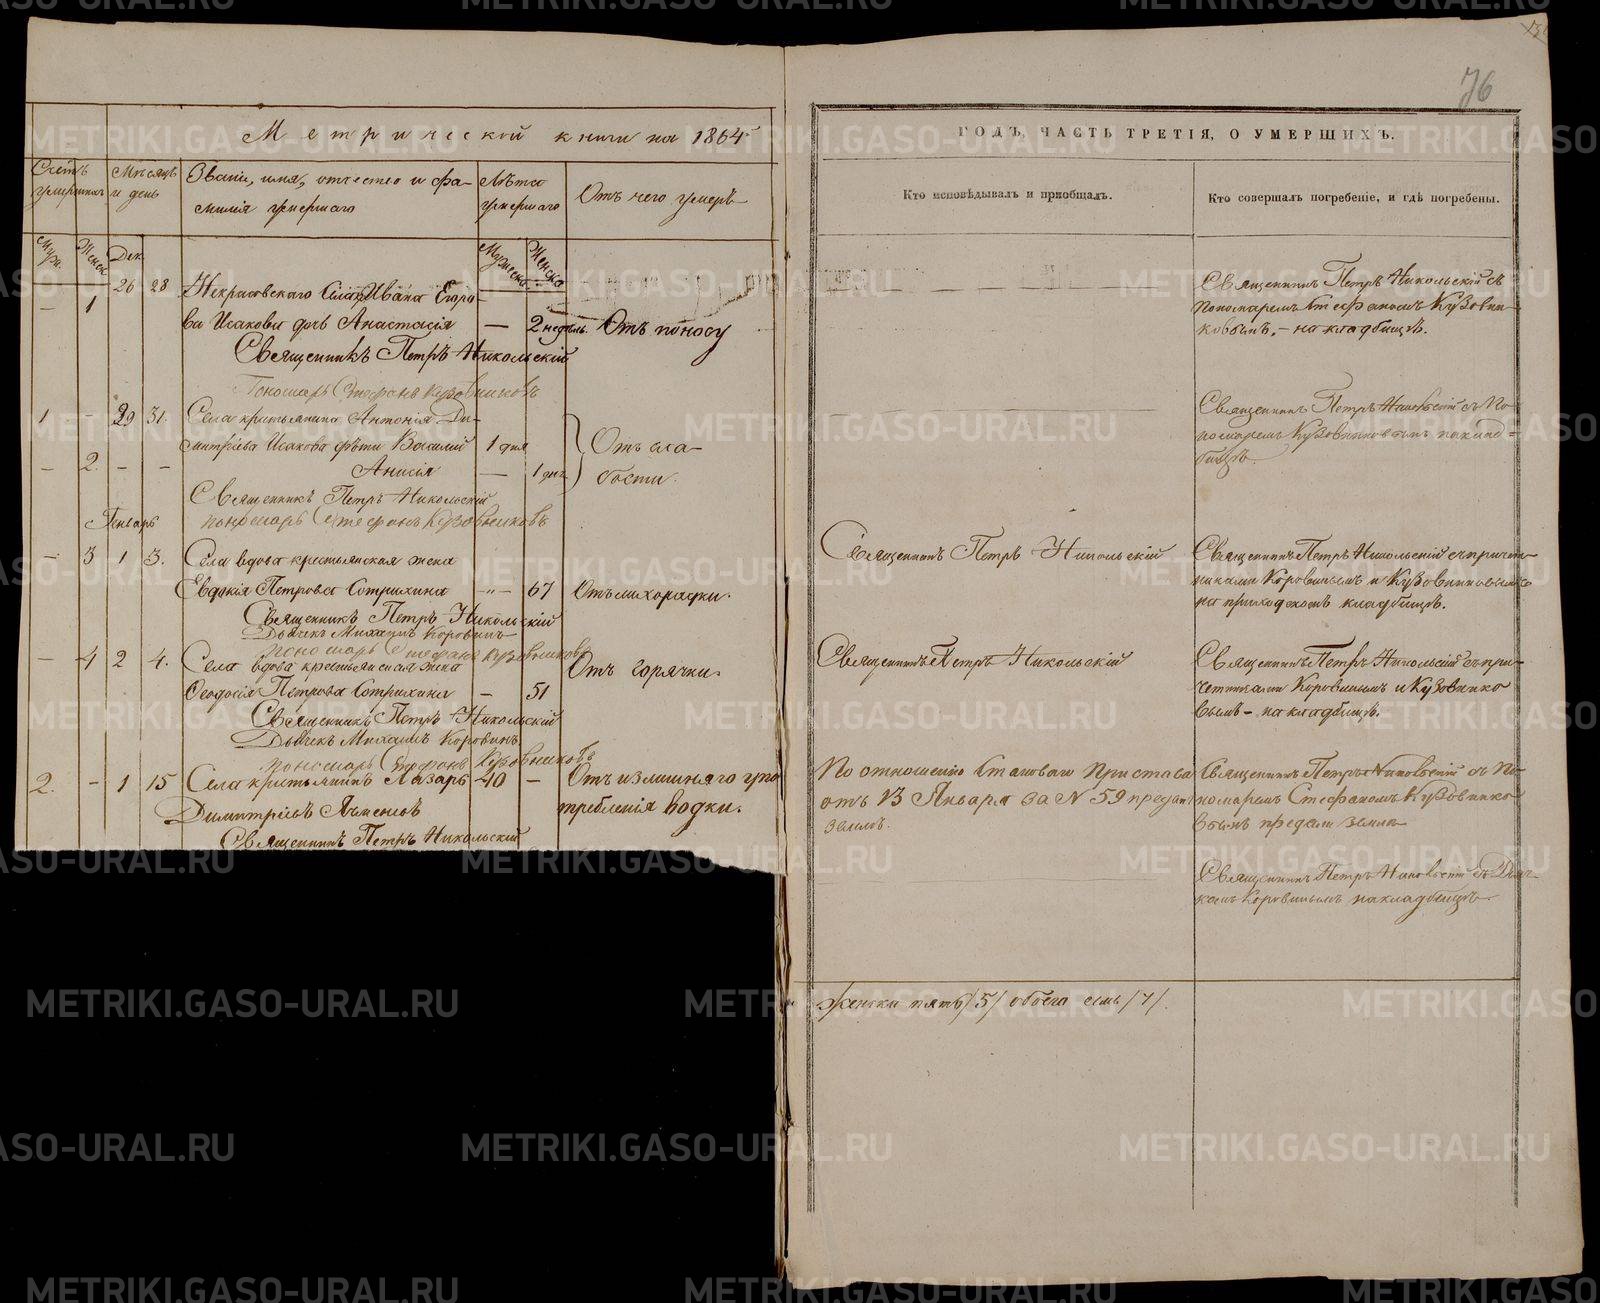 76
Метрической книги на 1864
Счетъ умершихъ
Мѣсяцъ и день
Званіе, имя, отчество и фамилія умершаго
Лѣта умершаго
Отъ чего умеръ
Муж.
Женск.
Дек.
Мужеска
Женска
- 1 26 28 Некрасовскаго села Ивана Егоро-
ва Исакова дочь Анастасія — 2 недѣль. Отъ поносу
Священникъ Петръ Никольскій
Пономарь Стефанъ Кузовниковъ
1 - 29 31. Села крестьянина Антонія Ди-
митріева Исакова дѣти Василій 1 дня Отъ сла-
- 2. - - Анисія — 1 день бости.
Священникъ Петръ Никольскій
пономарь Стефанъ Кузовниковъ
Генварь
- 3 1 3. Села вдова крестьянская жена
Евдокія Петрова Сотрихина -"- 67 Отъ лихорадки.
Священникъ Петръ Никольскій
Дьячекъ Михаилъ Коровинъ
пономарь Стефанъ Кузовниковъ
- 4 2 4. Села вдова крестьянская жена Отъ горячки.
Ѳеодосія Петрова Сотрихина - 51
Священникъ Петръ Никольскій
Дьячекъ Михаилъ Коровинъ
пономарь Стефанъ Кузовниковъ
2. - 1 15 Села крестьянинъ Лазарь 40 - Отъ излишняго упо
Димитріевъ требленія водки.
Священникъ Петръ Никольскій
ГОДЪ, ЧАСТЬ ТРЕТІЯ, О УМЕРШИХЪ.
Кто исповѣдывалъ и пріобщалъ.
Кто совершалъ погребеніе, и гдѣ погребены.
Священникъ Петръ Никольскій съ
пономаремъ Стефаномъ Кузовни-
ковымъ, - на кладбищѣ.
Священникъ Петръ Никольскій съ По-
номаремъ Кузовниковымъ на клад=
бищѣ.
Священникъ Петръ Никольскій
Священникъ Петръ Никольскій съ причет-
никами Коровинымъ и Кузовниковымъ
на приходскомъ кладбищѣ.
Священникъ Петръ Никольскій
Священникъ Петръ Никольскій съ при-
четниками Коровинымъ и Кузовнико
вымъ - на кладбищѣ.
По отношенію Становаго Пристава
отъ 13 Января за N 59 преданъ
землѣ.
Священникъ Петръ Никольскій съ По-
номаремъ Стефаномъ Кузовнико
вымъ предали землѣ
Священникъ Петръ Никольскій съ Дьяч-
комъ Коровинымъ на кладбищѣ.
женска пять /5/ обоего семь /7/.
METRIKI.GASO-URAL.RU